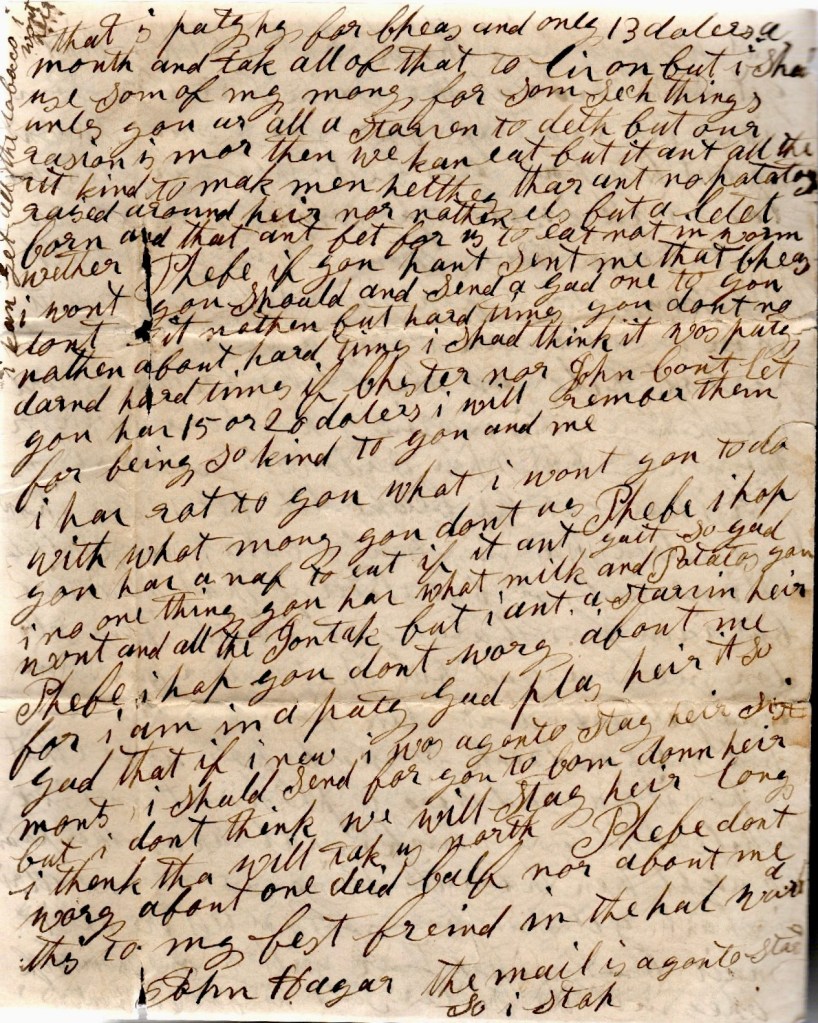 that is paty hy for bheas and only 13 dolers a
month and tak all of that to liv on but i sha
use som of my mony for som sech things
unles you ar all a Starren to deth but our
rasion is mor then we kan eat but it ant all the
rit kind to mak men helthey thar ant no patatos
rased around heir nor nothen els but a letel
born and that ant bet for us to eat not in worm
wether Phebe if you hant Sent me that bheas
i wont you Should and send a gad one to you
dont git nathen but hard times you dont no
nathen about hard times i Shad think it wos paty
darnd hard times if bhester nor John bont let
you har 15 or 20 dolers i will rember them
for being so kind to you and me
i har rot to you what i wont you to do
with what mony you dont us Phebe i hop
you har a naf to eat if it ant quit so gad
i no one thing you har what milk and Patatos you
wont and all the but i ant a Starrin heir
Phebe i hop you dont wory about me
for i am in a paty gad plas heir it so
gad that if i new i wos agonto Stay heir Six
monts i Shuld Send for you to bom donn heir
but i dont think we will Stay heir long
i thenk tha will tak us north Phebe dont
wory about one deid balf nor about me
this to my best freind in the hal
John Hagar the mail is agonto
So i Stop